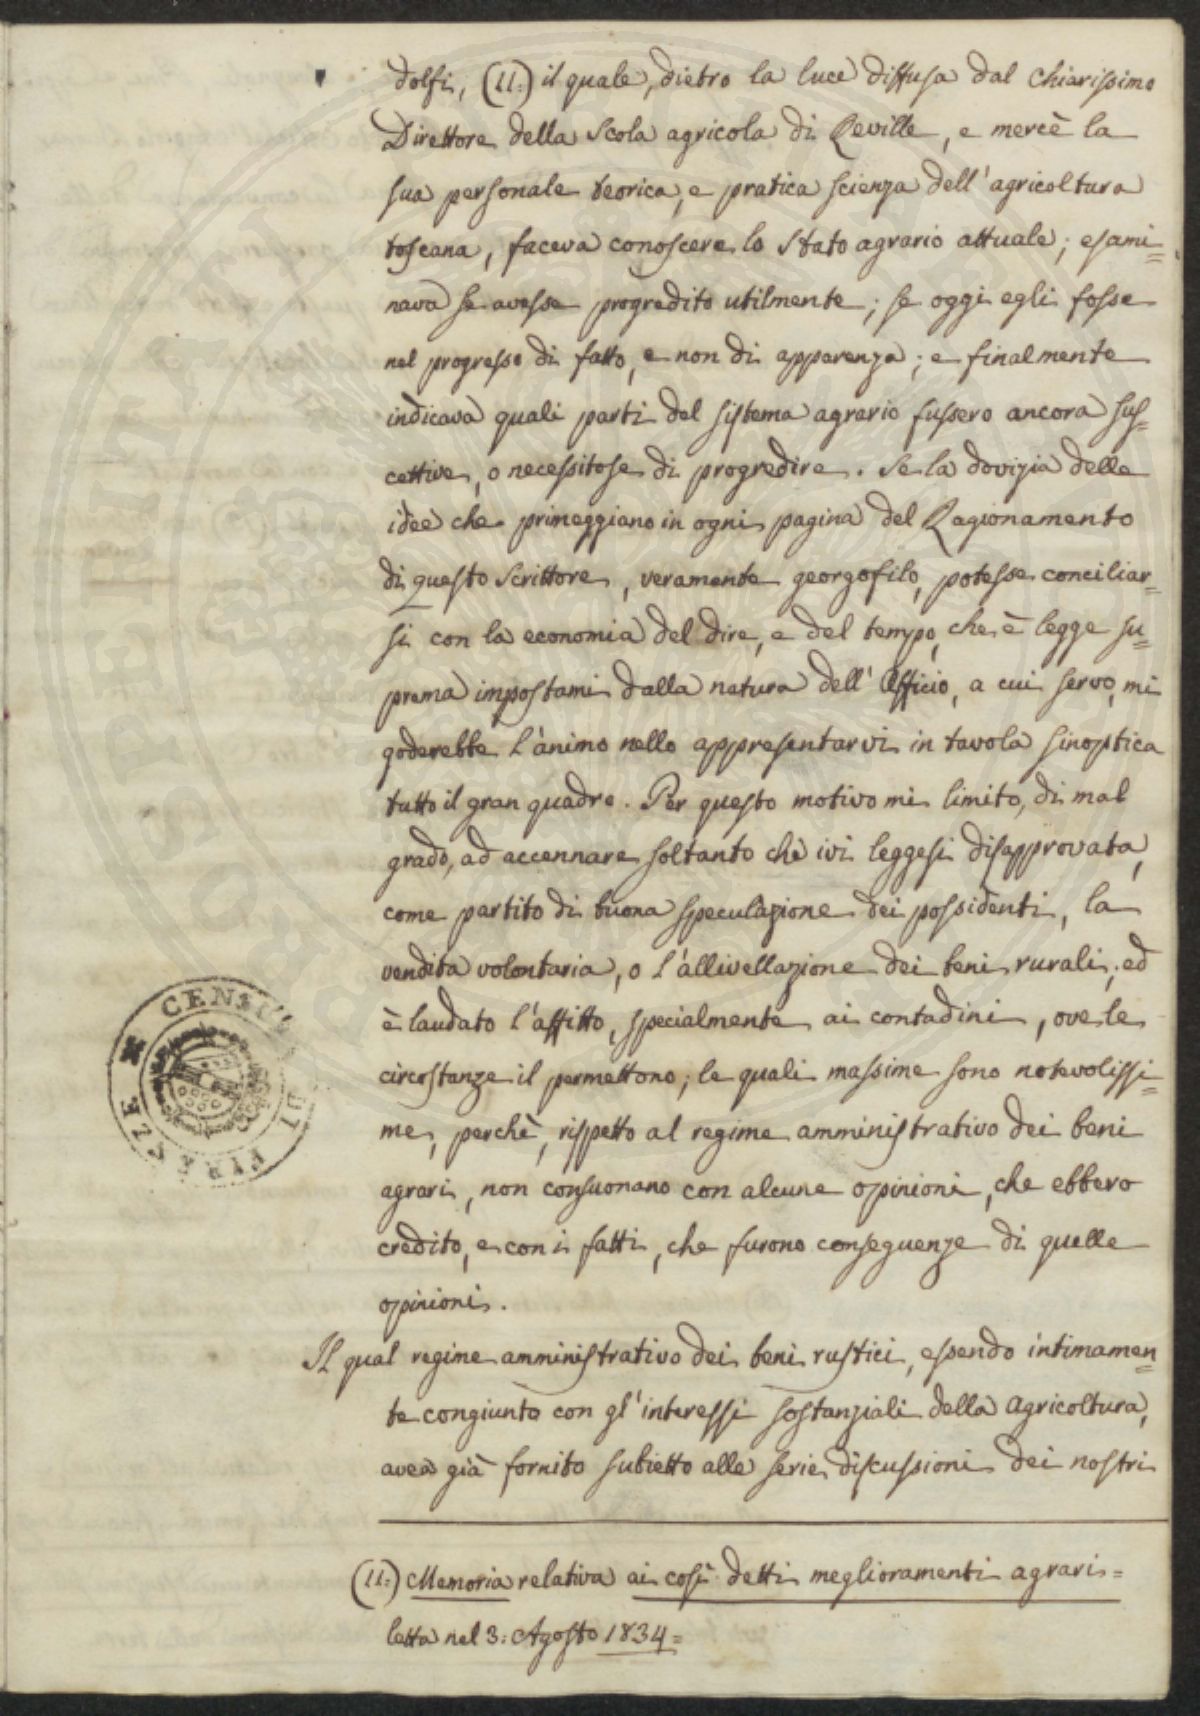 dolfi, (11:) il quale, dietro la luce diffusa dal Chiarissimo
Direttore della Scola agricola di Reville, e mercè la
sua personale teorica, e pratica scienza dell'agricoltura
toscana, faceva conoscere lo stato agrario attuale; esami=
nava se avesse progredito utilmente; se oggi egli fosse
nel progresso di fatto, e non di apparenza; e finalmente
indicava quali parti del sistema agrario fussero ancora sus=
cettive, o necessitose di progredire. Se la dovizia delle
idee che primeggiano in ogni pagina del Ragionamento
di questo Scrittore, veramente georgofilo, potesse conciliar=
si con la economia del dire, e del tempo, che è legge su=
prema impostami dalla natura dell'Officio, a cui servo, mi
goderebbe l'animo nello appresentarvi in tavola sinoptica
tutto il gran quadro. Per questo motivo mi limito, di mal
grado, ad accennare soltanto che ivi leggesi disapprovata,
come partito di buona speculazione dei possidenti, la
vendita volontaria, o l'allivellazione dei beni rurali; ed
è laudato l'affitto, specialmente ai contadini, ove le
circostanze il permettono; le quali massime sono notevolissi=
me, perchè, rispetto al regime amministrativo dei beni
agrari, non consuonano con alcune opinioni, che ebbero
credito, e con i fatti, che furono conseguenze di quelle
opinioni.
Il qual regime amministrativo dei beni rustici, essendo intimamen=
te congiunto con gl'interessi sostanziali della Agricoltura,
avea già fornito subietto alle serie discussioni dei nostri
(11:) Memoria relativa ai così detti miglioramenti agrari=
letta nel 3: Agosto 1834=
CENSURA DI FIRENZE
PROSPERITATI